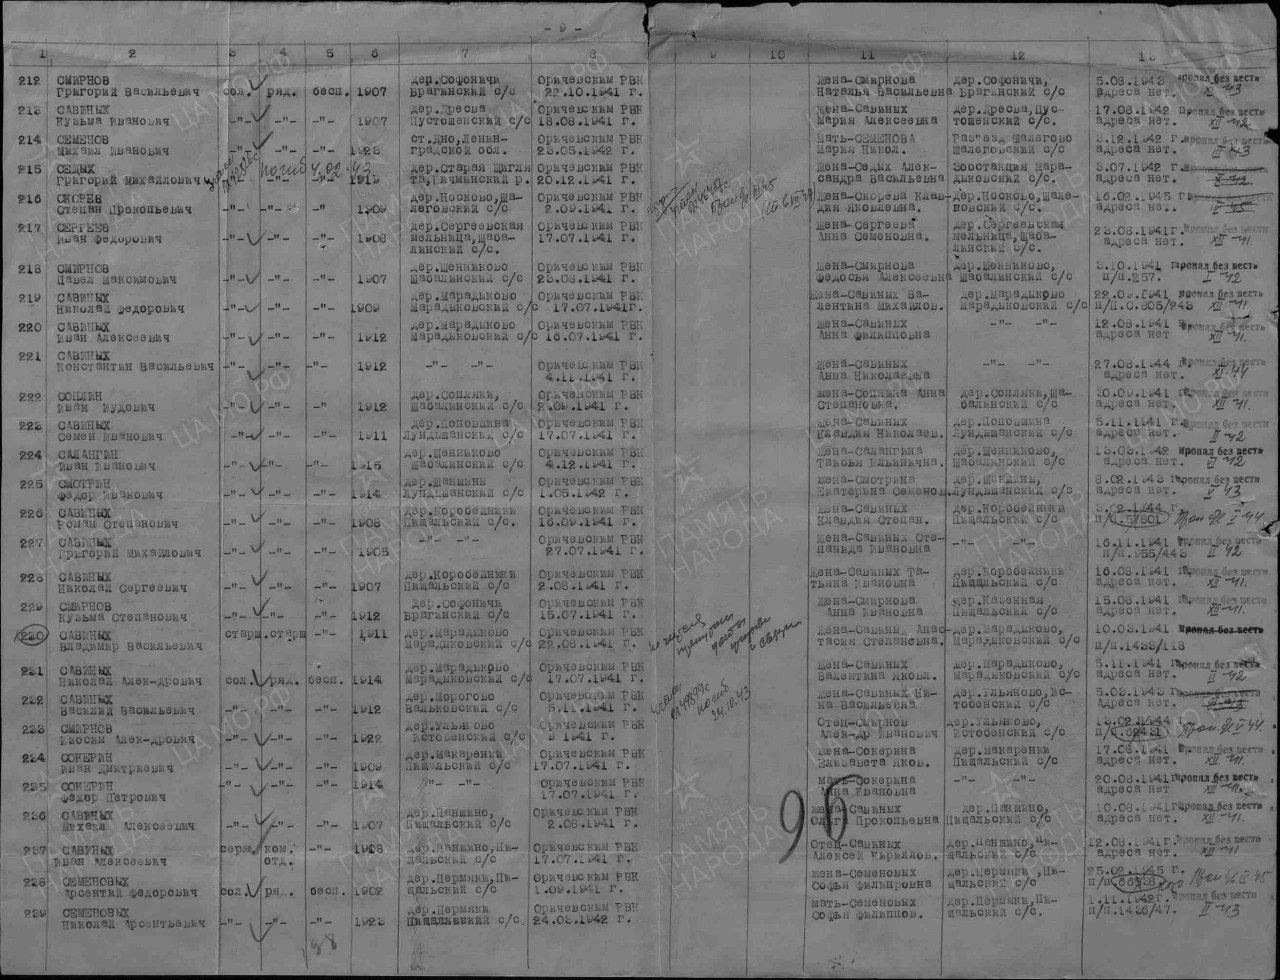 - 9 -
1 2 3 4 5 6 7 8 9 10 11 12 13
212 СМИРНОВ Григорий Васильевич сол. ряд. бесп. 1907 дер.Софоничи Брагинский с/с Оричевским РВК 22.10.1941 г. Жена-Смирнова Наталья Васильевна дер.Софоничи, Брагинский с/с 5.08.1943 адреса нет. Пропал без вести
213 САВИНЫХ Кузьма Иванович -"- -"- -"- 1907 дер.Дресва Пустошенский с/с Оричевским РВК 18.08.1941 г. Жена-Савиных Мария Алексеевна дер.Дресва,Пустошенский с/с. 17.08.1942 адреса нет. Пропал без вести XII-42
214 СЕМЕНОВ Михаил Иванович -"- -"- -"- 1923 ст.Дно,Ленинградской обл. Оричевским РВК 23.05.1942 г. Мать-СЕМЕНОВА Мария Никол. Разъезд Шалегово Шалеговский с/с 3.12.1942 г. адреса нет. пропал без вести
215 СЕДЫХ Григорий Михайлович -"- -"- -"- 1919 погиб 4.02.43 дер.Старая Оричевским РВК 20.12.1941 г. Жена-Седых Александра Васильевна Зоостанция Марадыковский с/с. 3.07.1942 г. адреса нет.
216 СКОРЕВ Степан Прокопьевич -"- -"- -"- 1909 дер.Носково,Шалеговский с/с Оричевским РВК 2.09.1941 г. Жена-Скорева Клавдия Яковлевна. дер.Носково,Шалеговский с/с. 16.02.1945 г. адреса нет.
217 СЕРГЕЕВ Иван Федорович -"- -"- -"- 1908 дер.Сергеевская мельница,Шабалинский с/с. Оричевским РВК 17.07.1941 г. Жена-Сергеева Анна Семеновна. дер.Сергеевская мельница,Шабалинский с/с. 23.08.1941г. адреса нет. Пропал без вести XII-41.
218 СМИРНОВ Павел Максимович -"- -"- -"- 1907 дер.Шенниково Шабалинский с/с Оричевским РВК 23.08.1941 г. Жена-Смирнова Федосья Алексеевна дер.Шенниково, Шабалинский с/с 3.10.1941 г. п/п.257. пропал без вести I-42
219 САВИНЫХ Николай Федорович -"- -"- -"- 1909 дер.Марадыково Марадыковский с/с Оричевским РВК 17.07.1941г. Жена-Савиных Валентина Михайлов. дер.Марадыково Марадыковский с/с 22.09.1941 п/п.0.805/243 пропал без вести XII-41.
220 САВИНЫХ Иван Алексеевич -"- -"- -"- 1912 дер.Марадыково Марадыковский с/с Оричевским РВК 16.07.1941 г. Жена-Савиных Анна Филипповна -"- -"- 12.08.1941 г. адреса нет. Пропал без вести XII-41.
221 САВИНЫХ Константин Васильевич -"- -"- -"- 1912 -"- -"- Оричевским РВК 4.11.1941 г. Жена-Савиных Анна Николаевна -"- -"- 27.08.1944 г. адреса нет. Пропал без вести XI-44
222 СОПЛИН Иван -"- -"- -"- 1912 дер.Сопляки, Шабалинский с/с Оричевским РВК 2.09.1941 г. Жена-Соплина Анна Степановна. дер.Сопляки,Шабалинский с/с адреса нет. Пропал без вести XII-41.
223 САВИНЫХ Семен Иванович -"- -"- -"- 1911 дер.Поповщина Лундышанский с/с Оричевским РВК 17.07.1941 г. Жена-Савиных Клавдия Николаев. дер.Поповщина Лундышанский с/с 5.11.1941 г. адреса нет. Пропал без вести II-42
224 САЛАНГИН Иван Иванович -"- -"- -"- 1915 дер.Шенниково Шабалинский с/с Оричевским РВК 4.12.1941 г. Жена-Салангина Таисья Ильинична. дер.Шенниково, Шабалинский с/с 13.03.1942 адреса нет. Пропал без вести VI-42
225 СМОТРИН Федор Иванович -"- -"- -"- 1914 дер.Шаншины Лундышанский с/с Оричевским РВК 1.05.1942 г. Жена-Смотрина Екатерина Семенов. Лундышанский с/с 8.02.1943 адреса нет. Пропал без вести V 43
226 САВИНЫХ Роман Степанович -"- -"- -"- 1908 дер.Коробейники Пищальский с/с. Оричевским РВК 16.09.1941 г. Жена-Савиных Клавдия Степан. дер.Коробейники Пищальский с/с 3.02.1944 г. п/п.57801
227 САВИНЫХ Григорий Михайлович -"- -"- -"- 1905 -"- -"- Оричевским РВК 27.07.1941 г. Жена-Савиных Степанида Ивановна -"- -"- 16.11.1941 п/п.955/443 Пропал без вести II 42
228 САВИНЫХ Николай Сергеевич -"- -"- -"- 1907 дер.Коробейники Пищальский с/с Оричевским РВК 2.08.1941 г. Жена-Савиных Татьяна Ивановна дер.Коробейники Пищальский с/с 16.08.1941 адреса нет. Пропал без вести XII-41.
229 СМИРНОВ Кузьма Степанович -"- -"- -"- 1912 дер.Софоничи Брагинский с/с Оричевским РВК 15.07.1941 г. Жена-Смирнова Анна Ивановна дер.Казенная Пищальский с/с 15.08.1941 адреса нет. Пропал без вести XII-41.
230 САВИНЫХ Владимир Васильевич старш.старш -"- 1911 дер.Марадыково Марадыковский с/с Оричевским РВК 22.08.1941 г. Жена-Савиных Анастасия Степановна. дер.Марадыково, Марадыковский с/с 10.03.1941 п/п.1438/118 Пропал без вести
231 САВИНЫХ Николай Алек-дрович сол. ряд. бесп. 1914 дер.Марадыково Марадыковский с/с Оричевским РВК 17.07.1941 г. Жена-Савиных Валентина Яковл. дер.Марадыково, Марадыковский с/с 5.11.1941 г. адреса нет. Пропал без вести II-42
232 САВИНЫХ Василий Васильевич -"- -"- -"- 1912 дер.Морогово Вальковский с/с Оричевским РВК 5.11.1941 г. погиб 24.10.43 Жена-Савиных Нина Васильевна дер.Ульяново,Истобенский с/с 5.03.1943 г. адреса нет.
233 СМИРНОВ Изосим Алек-дрович -"- -"- -"- 1922 дер.Ульяново Истобенский с/с Оричевским РВК 1941 г. Отец-Смирнов Алек-др Иванович дер.Ульяново, Истобенский с/с 13.02.1944 г.
234 СОКЕРИН Иван Дмитриевич -"- -"- -"- 1909 дер.Макаренки Пищальский с/с Оричевским РВК 17.07.1941 г. Жена-Сокерина Елизавета Яков. дер.Макаренки Пищальский с/с 17.08.1941 адреса нет. Пропал без вести XII-41.
235 СОКЕРИН Федор Петрович -"- -"- -"- 1914 -"- -"- Оричевским РВК 17.07.1941 г. Мать-Сокерина Анна Ивановна -"- -"- 20.08.1941 адреса нет Пропал без вести XII-41.
236 САВИНЫХ Михаил Алексеевич -"- -"- -"- 1907 дер.Паншино, Пищальский с/с Оричевским РВК 2.08.1941 г. Жена-Савиных Ольга Прокопьевна дер.Паншино, Пищальский с/с 10.08.1941 адреса нет. Пропал без вести XII-41.
237 САВИНЫХ Иван Алексеевич серж. ком. отд. -"- 1918 дер.Паншино,Пищальский с/с Оричевским РВК 17.07.1941 г. Отец-Савиных Алексей Кириллов. дер.Паншино,Пищальский с/с 12.08.1941г. адреса нет. Пропал без вести XII-41
238 СЕМЕНОВЫХ Арсентий Федорович сол. ряд. бесп. 1902 дер.Пермяки,Пищальский с/с Оричевским РВК 1.09.1941 г. Жена-Семеновых Софья Филипровна дер.Пермяки,Пищальский с/с 25.02.1945 г.
239 СЕМЕНОВЫХ Николай Арсентьевич -"- -"- -"- 1923 дер.Пермяки Пищальский с/с Оричевским РВК 24.03.1942 г. Мать-Семеновых Софья Филиппов. дер.Пермяки,Пищальский с/с. 1.11.1942г. п/п.1436/47. Пропал без вести II-43
96
188
ПАМЯТЬ НАРОДА
ЦАМО.РФ